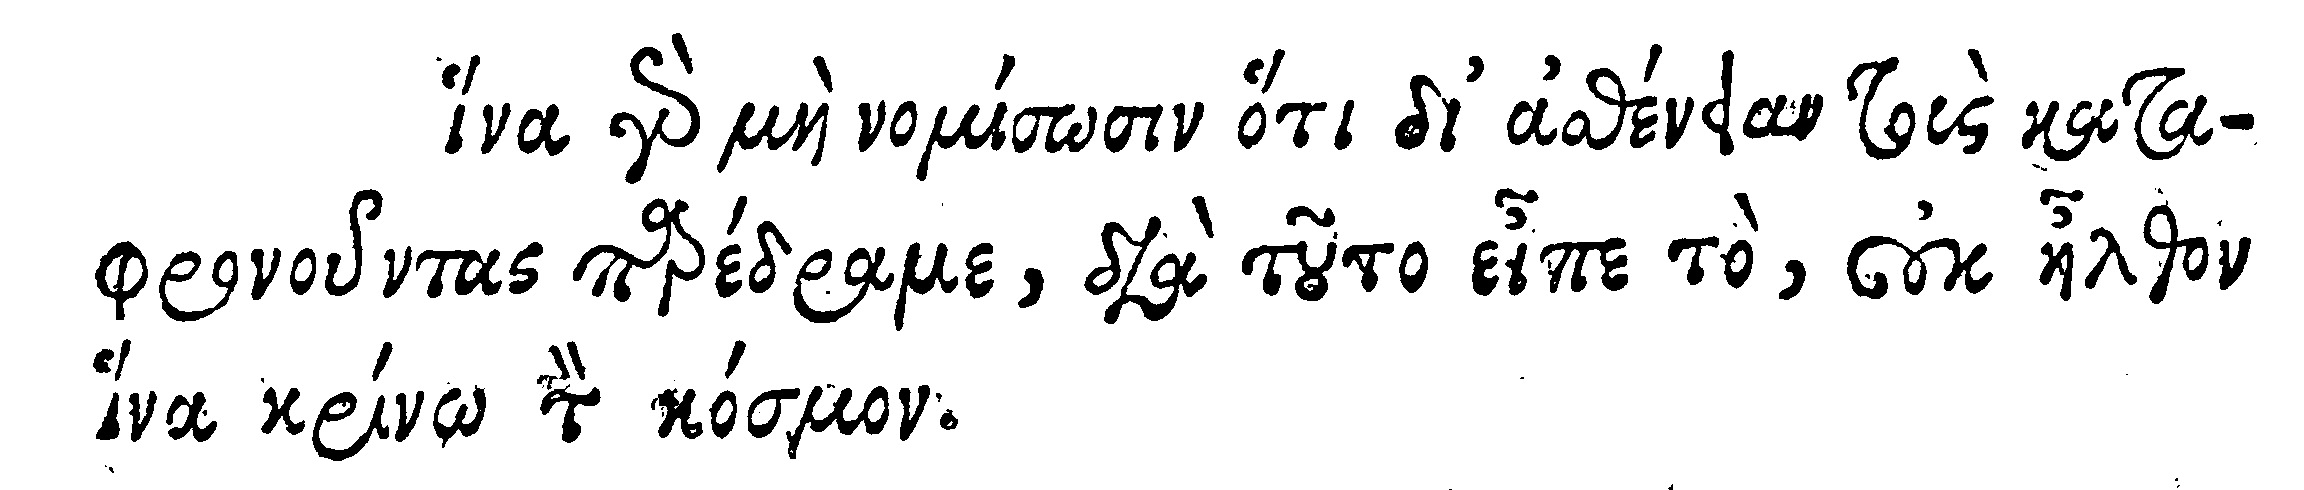 ἵνα γὰρ μὴ νομίσωσιν ὅτι δι' ἀσθένειαν τοὺς κατα-
φρονοῦντας παρέδραμε, διὰ τοῦτο εἶπε τὸ, οὐκ ἦλθον
ἵνα κρίνω τὸν κόσμον.